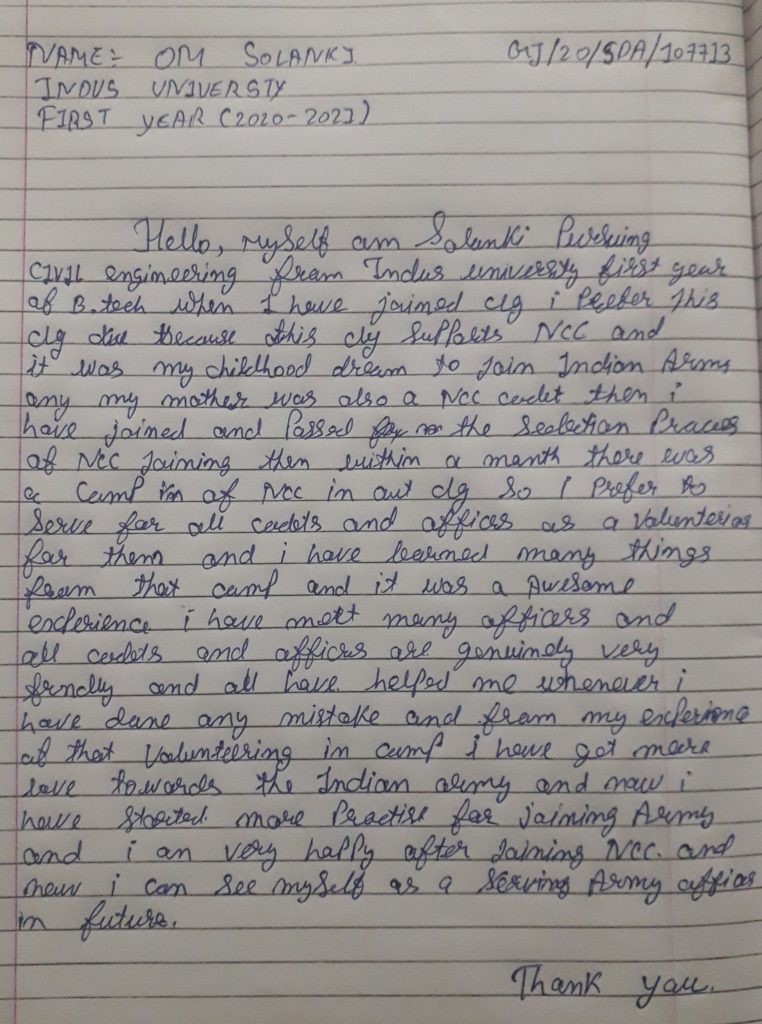 NAME:- OM SOLANKI GUJ/20/SDA/107713
INDUS UNIVERSTY
FIRST YEAR (2020-2021)
Hello, myself om Solanki Pursuing
CIVIL engineering from Indus university first year
of B.tech when I have joined clg i Prefer This
clg due because this clg Supports NCC and
it was my childhood dream to Join Indian Army
any my mother was also a NCC cadet then i
have joined and Passed the Seelection Process
of NCC Joining then within a month there was
a Camp in of NCC in out clg So I Prefer to
Serve for all cadets and offices as a Valunterias
for them and i have learned many things
from that camp and it was a Awesome
experience i have mett many officers and
all cadets and officrs are genuindy very
frndly and all have helped me whenever i
have done any mistake and from my experienc
of that Valunteering in camp i have got more
love towards the Indian army and now i
have Started more Practise for joining Army
and i an very happy after Joining NCC. and
now i can See myself as a Serving Army offics
in future.
Thank you.